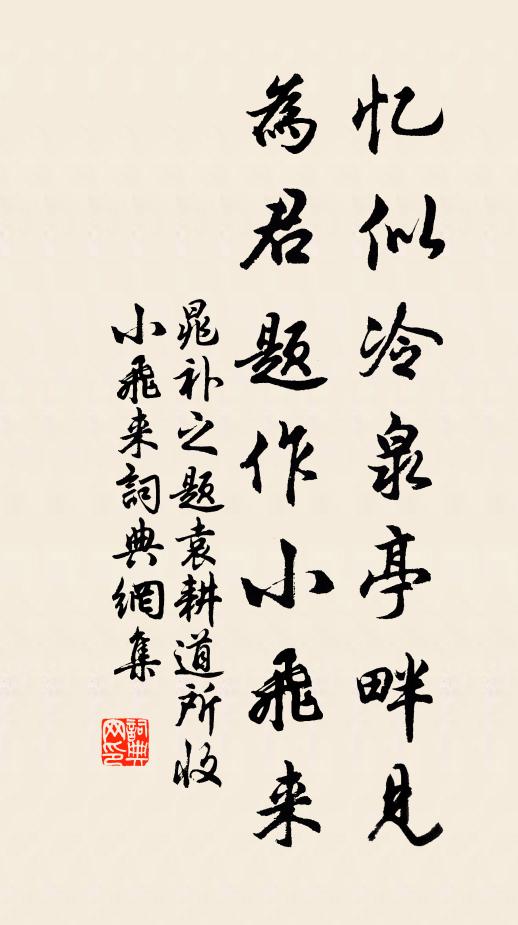 忆似冷泉亭畔见
為君题作小飛来
晁补之题袁耕道所收
小飛来詞典網集
詞典
网印